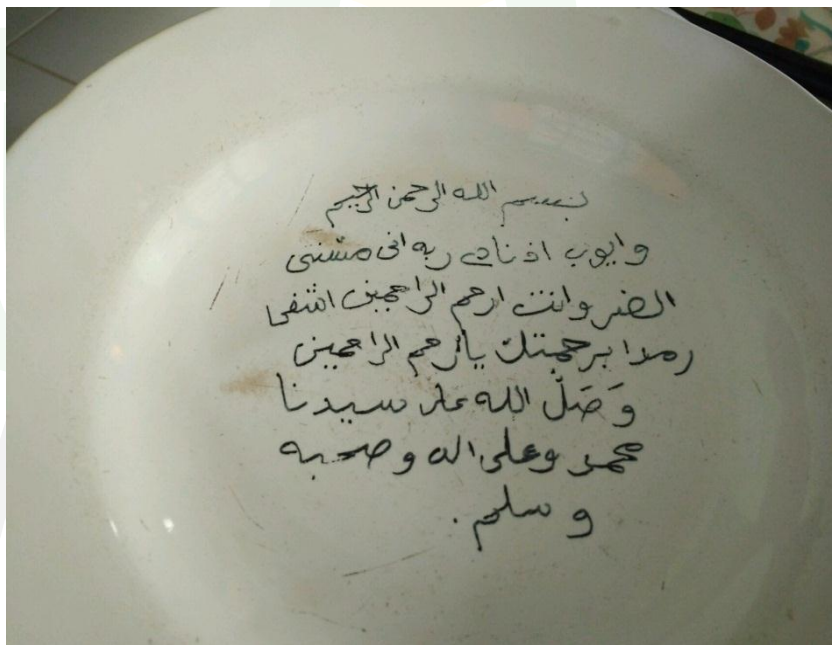 بسم الله الرحمن الرحيم
وايوب اذ نادى ربه انى مسنى
الضر وانت ارحم الراحمين اشفى
برحمتك ياارحم الراحمين
وَصَلّ الله على سيدنا
محمد وعلى اله وصحبه
وسلم.